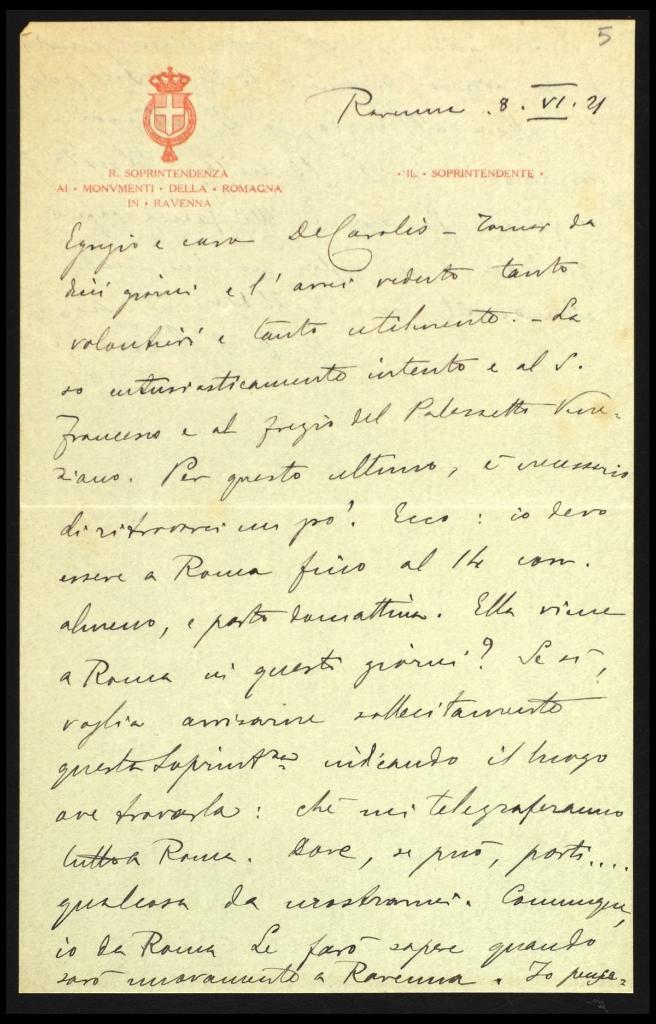 5
Ravenna . 8 . VI . 21
R. SOPRINTENDENZA
AI • MONVMENTI • DELLA • ROMAGNA
IN • RAVENNA
• IL • SOPRINTENDENTE •
Egregio e caro De Carolis – Tornai da
dieci giorni e l'avrei veduto tanto
volentieri e tanto utilmente. – La
so entusiasticamente intento e al S.
Francesco e al fregio del Palazzetto Vene-
ziano. Per questo ultimo, è necessario
di ritrovarci un po'. Ecco : io devo
essere a Roma fino al 14 corr.
almeno, e parto domattina. Ella viene
a Roma in questi giorni? Se sì,
voglia avvisarne sollecitamente
questa Soprintza indicando il luogo
ove trovarla : chè mi telegraferanno
a Roma. Dove, se può, porti....
qualcosa da mostrarmi. Comunque,
io da Roma Le farò sapere quando
sarò nuovamente a Ravenna. Io